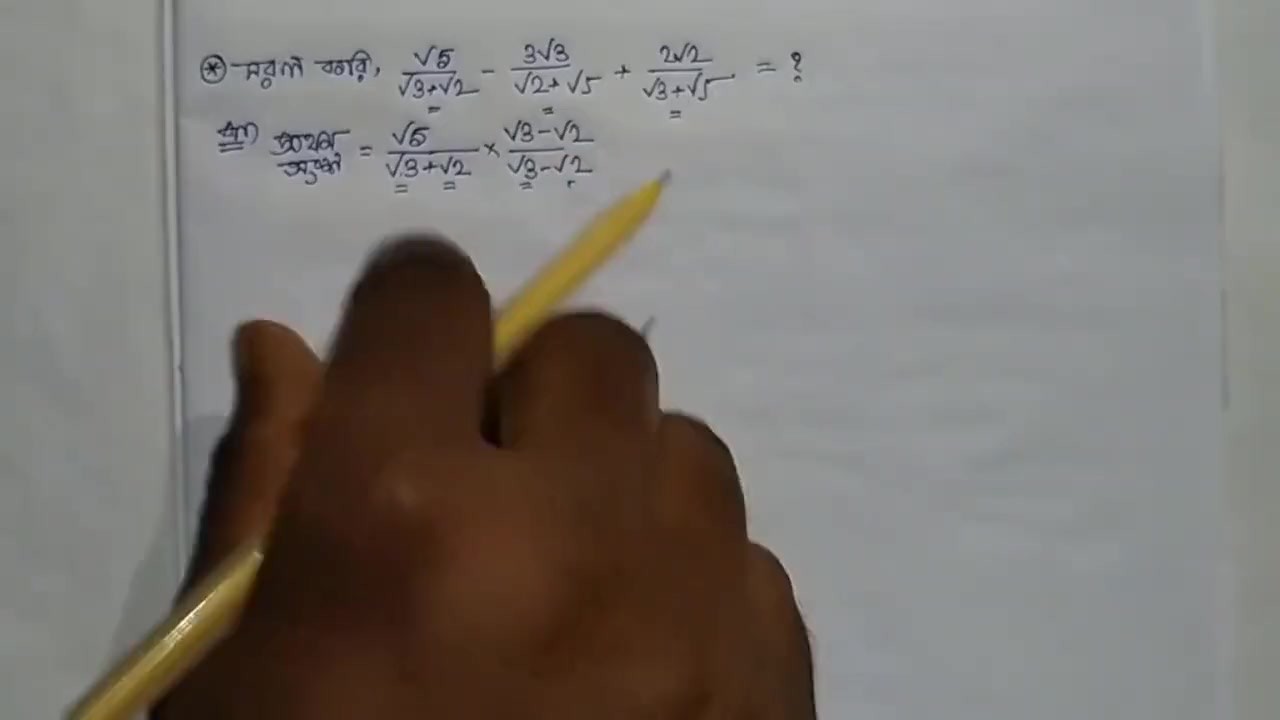 * সরল করি, √5/(√3+√2) - 3√3/(√2+√5) + 2√2/(√3+√5) = ?
প্রথম অংশ = √5/(√3+√2) × (√3-√2)/(√3-√2)